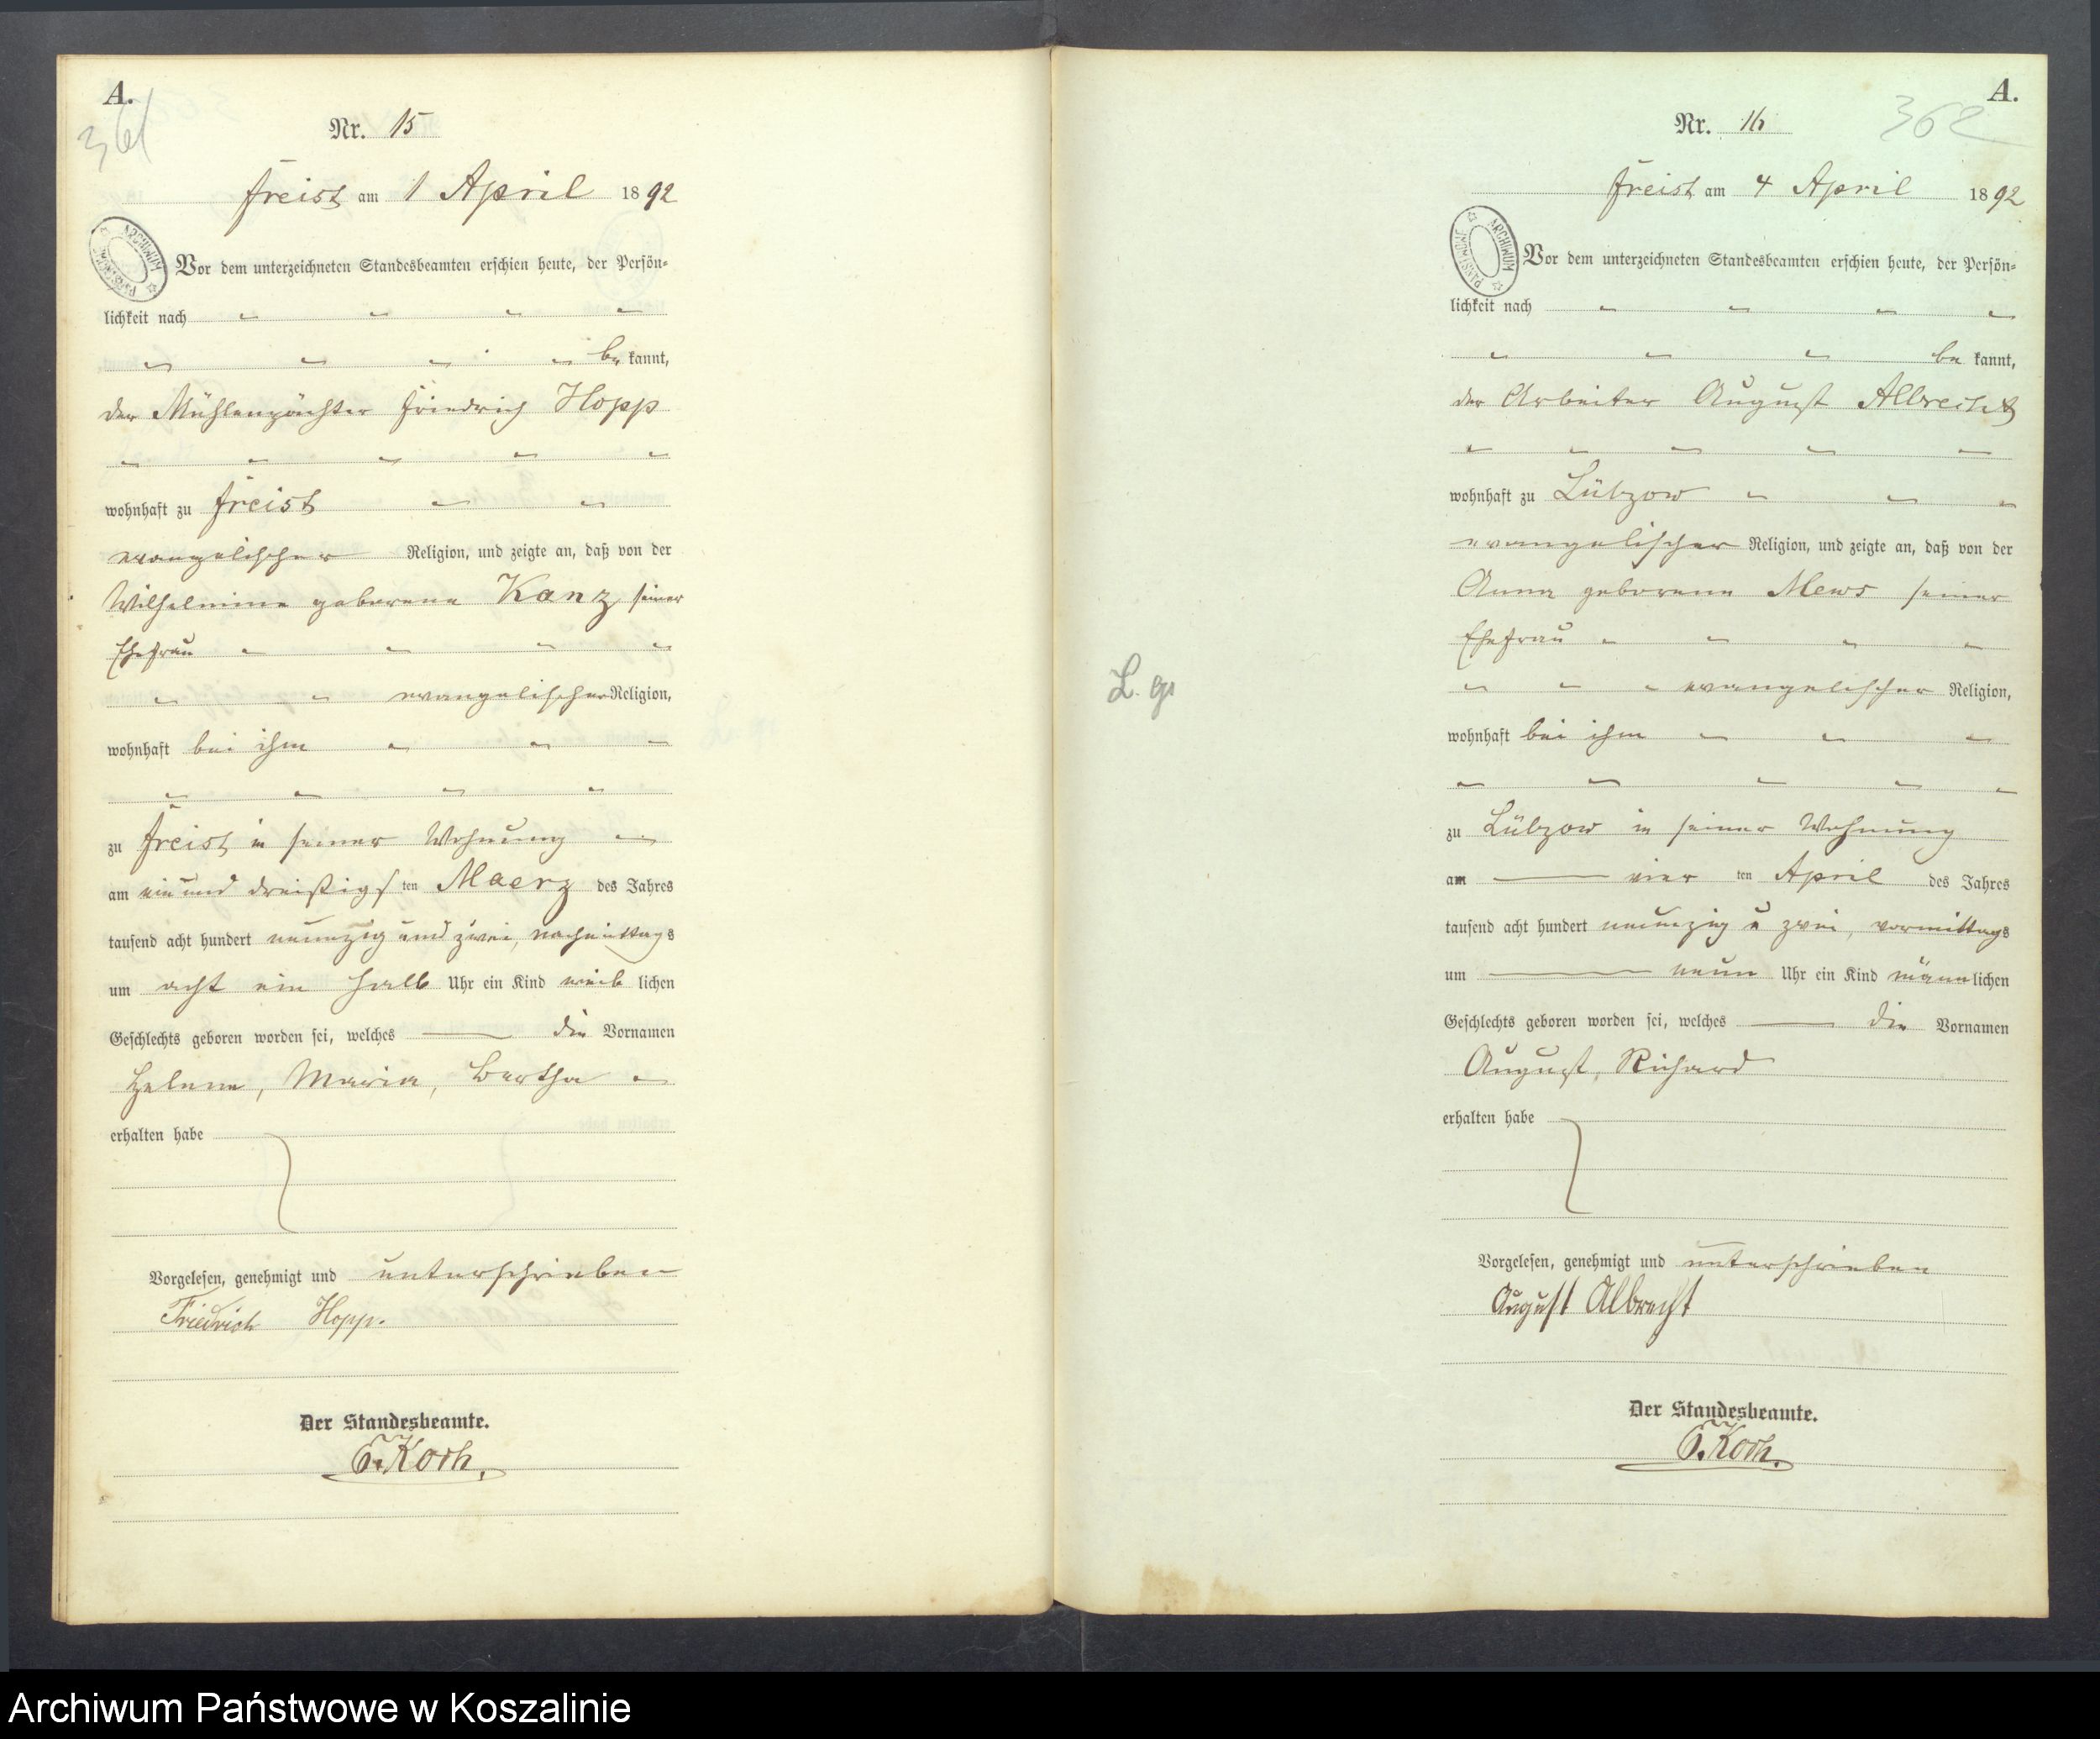 A.
361
Nr. 15
Freist am 1 April 1892
ARCHIWUM PAŃSTWOWE
Vor dem unterzeichneten Standesbeamten erschien heute, der Persön-
lichkeit nach
be kannt,
der Mühlenpächter Friedrich Hopp
wohnhaft zu Freist
evangelischer Religion, und zeigte an, daß von der
Wilhelmine geborene Kanz seiner
Ehefrau
evangelischer Religion,
wohnhaft bei ihm
zu Freist in seiner Wohnung
am ein und dreißigsten Maerz des Jahres
tausend acht hundert neunzig und zwei, nachmittags
um acht ein halb Uhr ein Kind weib lichen
Geschlechts geboren worden sei, welches die Vornamen
Helene, Maria, Bertha
erhalten habe
Vorgelesen, genehmigt und unterschrieben
Friedrich Hopp.
Der Standesbeamte.
Koch.
A.
362
Nr. 16
Freist am 4 April 1892
ARCHIWUM PAŃSTWOWE
Vor dem unterzeichneten Standesbeamten erschien heute, der Persön-
lichkeit nach
be kannt,
der Arbeiter August Albrecht
wohnhaft zu Lübzow
evangelischer Religion, und zeigte an, daß von der
Anna geborene Mews seiner
Ehefrau
L. g.
evangelischer Religion,
wohnhaft bei ihm
zu Lübzow in seiner Wohnung
am vier ten April des Jahres
tausend acht hundert neunzig u zwei, vormittags
um neun Uhr ein Kind männlichen
Geschlechts geboren worden sei, welches die Vornamen
August, Richard
erhalten habe
Vorgelesen, genehmigt und unterschrieben
August Albrecht
Der Standesbeamte.
Koch.
Archiwum Państwowe w Koszalinie